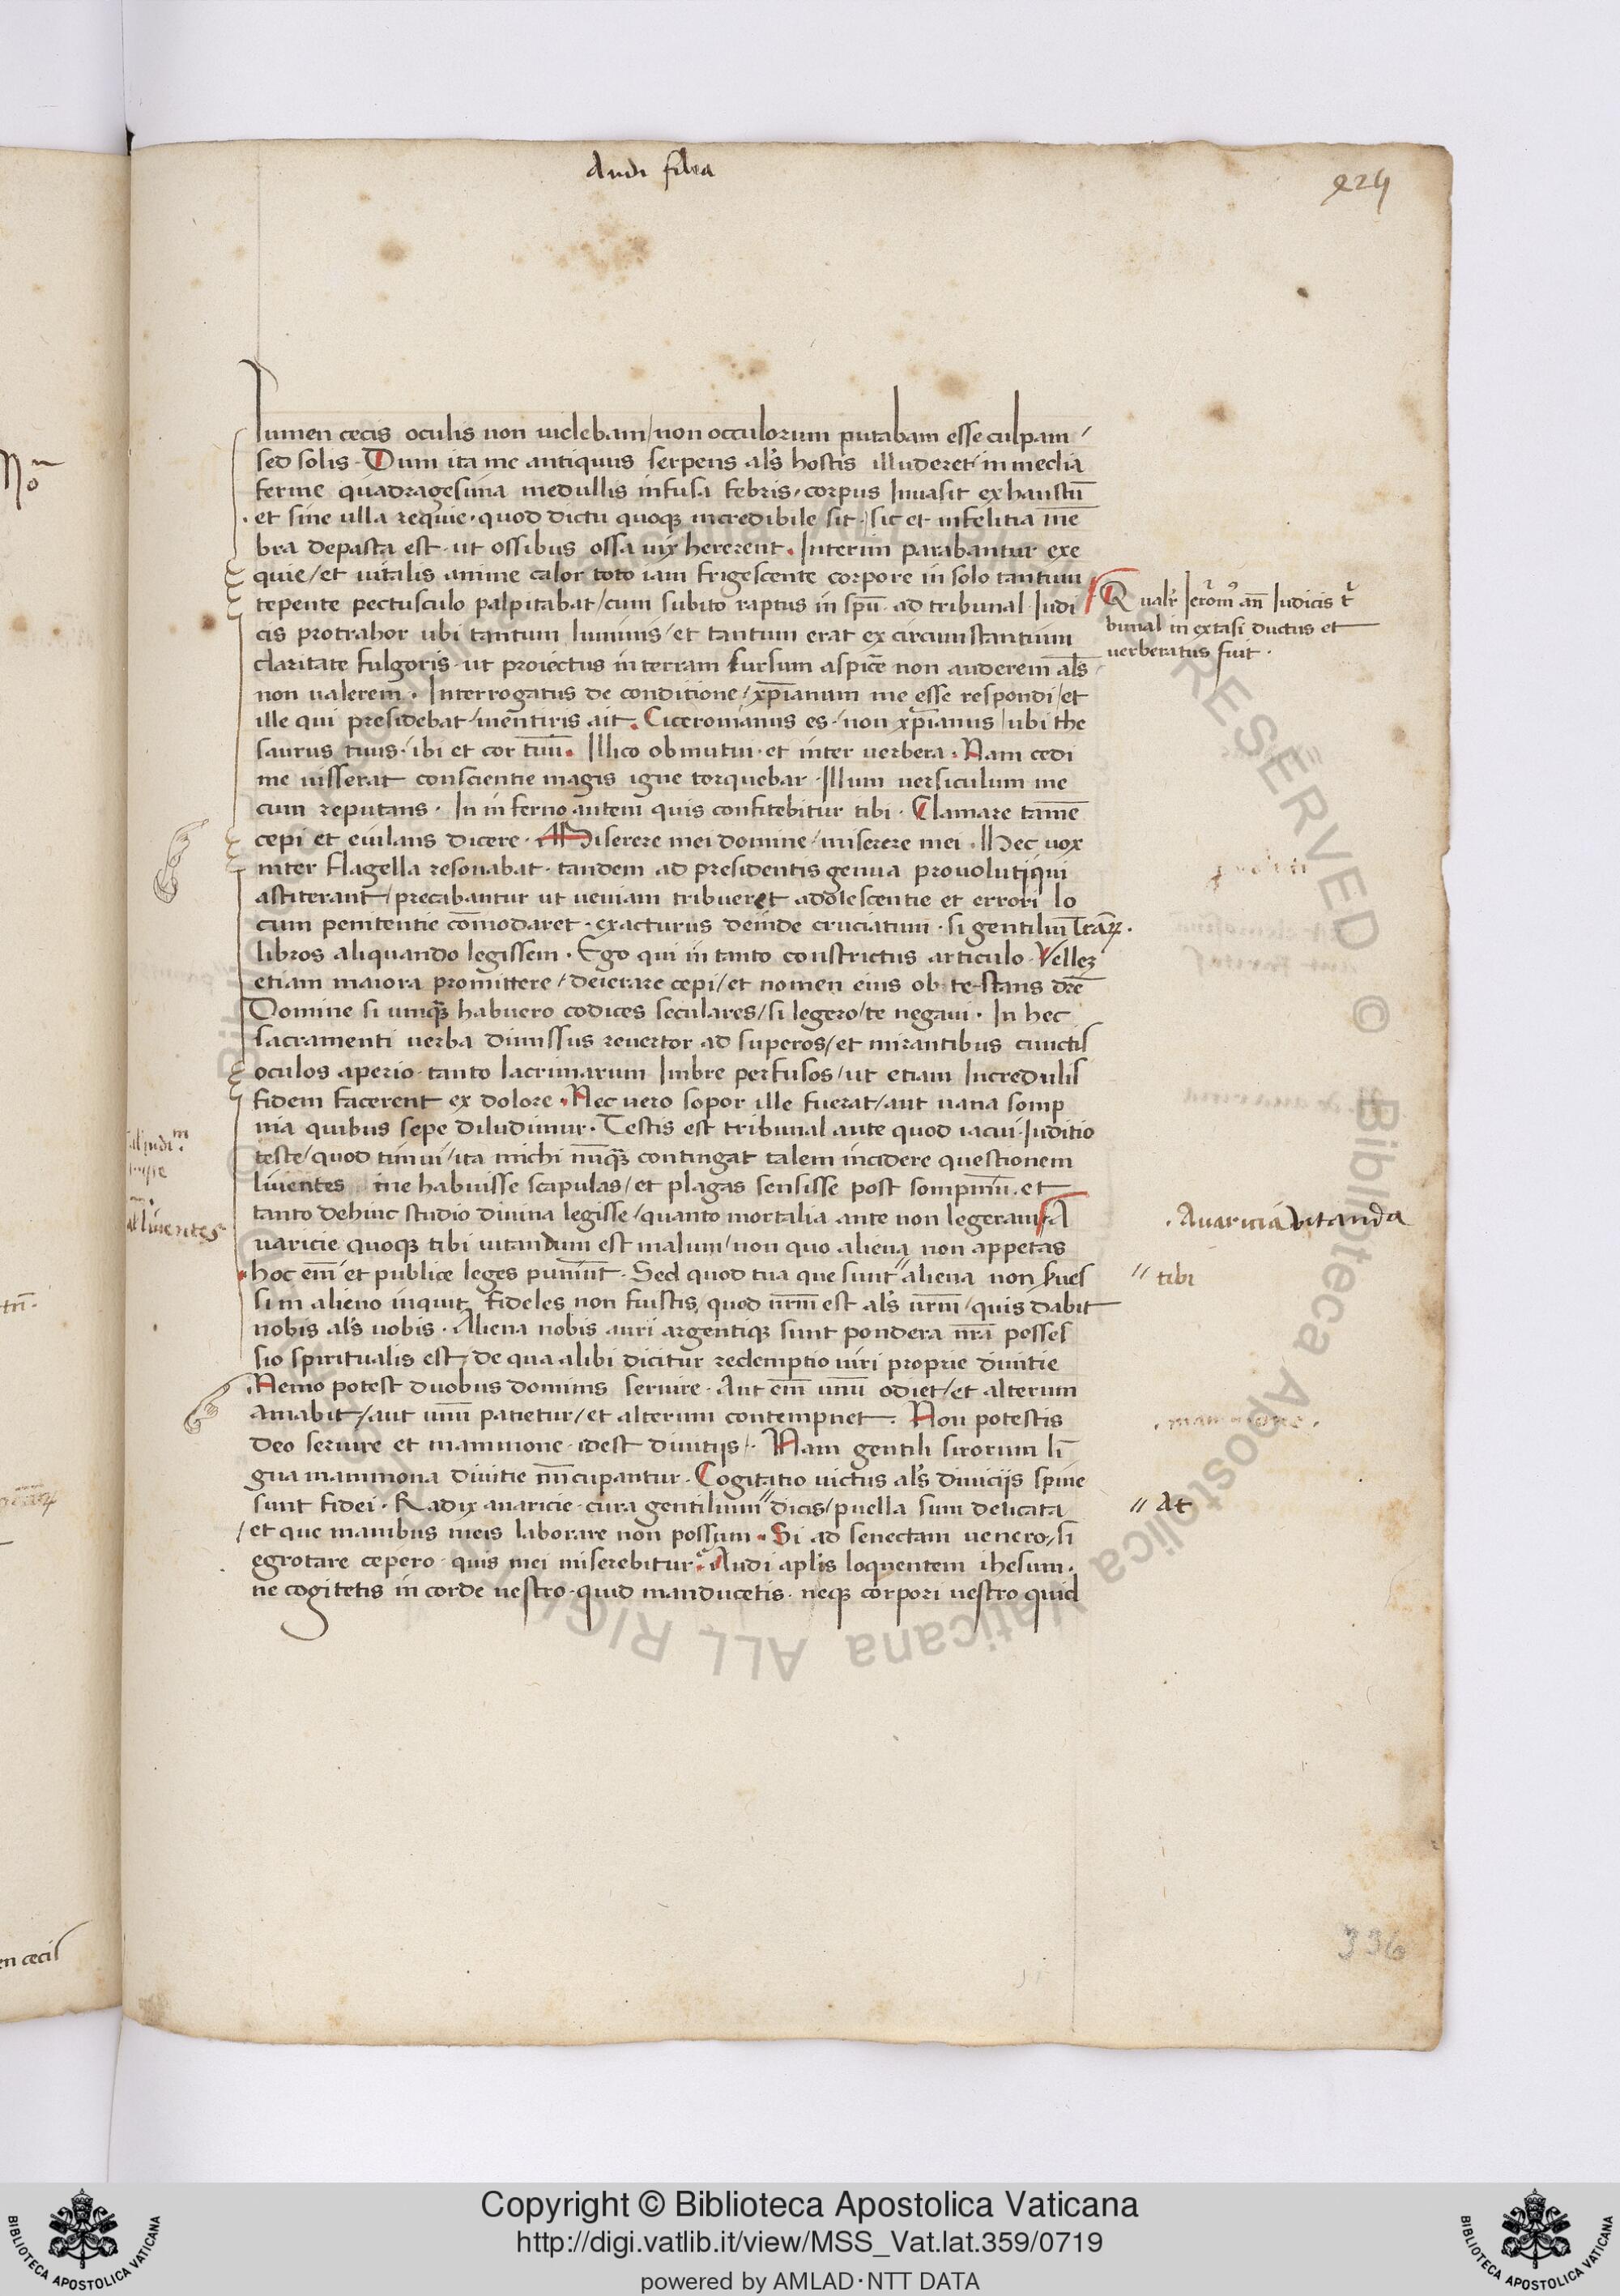 Audi filia
224
lumen cecis oculis non uidebam/non occulorum putabam esse culpam/
sed solis. Dum ita me antiquus serpens als̄ hostis illuderet/in media
ferme quadragesima medullis infusa febris/corpus Inuasit exhaustū
.et sine ulla requie.quod dictu quoqꝫ incredibile sit./sic et infelitia mē
bra depasta est.ut ossibus ossa uix hererent. Interim parabantur exe
quie/et uitalis anime calor toto iam frigescente corpore in solo tantum
tepente pectusculo palpitabat/cum subito raptus in spū.ad tribunal Iudi
cis protrahor ubi tantum luminis/et tantum erat ex circumstantium
claritate fulgoris.ut proiectus in terram sursum aspicē non auderem als̄
non ualerem. Interrogatus de conditione/xp̄ianum me esse respondi/et
ille qui presidebat/mentiris ait. Ciceronianus es/non xp̄ianus/ubi the
saurus tuus.ibi et cor tuū. Illico obmutui.et inter uerbera. Nam cedi
me iusserat conscientie magis igne torquebar.Illum uersiculum me
cum reputans. In inferno autem quis confitebitur tibi. Clamare tamē
cepi et eiulans dicere. Miserere mei domine/miserere mei. Hec uox
inter flagella resonabat.tandem ad presidentis genua prouoluti/qui
astiterant/precabantur ut ueniam tribueret adolescentie et errori lo
cum penitentie cōmodaret.exacturus deinde cruciatum.si gentiliū lr̄aꝝ.
libros aliquando legissem. Ego qui in tanto constrictus articulo.Vellem
etiam maiora promittere/deierare cepi/et nomen eius ob-te-stans dr̄e
Domine si unqꝫ habuero codices seculares/si legero/te negaui. In hec
sacramenti uerba dimissus reuertor ad superos/et mirantibus cunctis
oculos aperio.tanto lacrimarum Imbre perfusos/ut etiam Incredulis
fidem facerent ex dolore. Nec uero sopor ille fuerat/aut uana somp
nia quibus sepe diludimur. Testis est tribunal ante quod iacui.Iuditio
teste/quod timui/ita michi nūqꝫ contingat talem incidere questionem
liuentes me habuisse scapulas/et plagas sensisse post sompnū.et
tanto dehinc studio diuina legisse/quanto mortalia ante non legeram. A
uaricie quoqꝫ tibi uitandum est malum/non quo aliena non appetas
hoc em̄ et publice leges puniūt. Sed quod tua que sunt″aliena non serues
si in alieno inquit fideles non fuistis/quod nr̄m est als̄ ur̄m/quis dabit
nobis als̄ uobis. Aliena nobis auri argentiqꝫ sunt pondera nr̄a posses
sio spiritualis est/de qua alibi dicitur redemptio uiri proprie diuitie
Nemo potest duobus dominis seruire. Aut em̄ unū odiet/et alterum
amabit/aut unū patietur/et alterum contempnet. Non potestis
deo seruire et mammone.idest diuitijs/. Nam gentili sirorum lī
gua mammona diuitie nūcupantur. Cogitatio uictus als̄ diuicijs spine
sunt fidei. Radix auaricie.cura gentilium″dicis/puella sum delicata
/et que manibus meis laborare non possum. Si ad senectam uenero/si
egrotare cepero.quis mei miserebitur. Audi aplis loquentem ihesum.
ne cogitetis in corde uestro.quid manducetis.neqꝫ corpori uestro quid
Qualr̄ Ierom̄ an̄ Iudicis tr̄
bunal in extasi ductus et
uerberatus fuit.
.Auaricia uitanda
″ tibi
.mammone.
″ At
al liuentes
336
No
en cecis
Copyright © Biblioteca Apostolica Vaticana
http://digi.vatlib.it/view/MSS_Vat.lat.359/0719
powered by AMLAD·NTT DATA
BIBLIOTECA APOSTOLICA VATICANA
BIBLIOTECA APOSTOLICA VATICANA